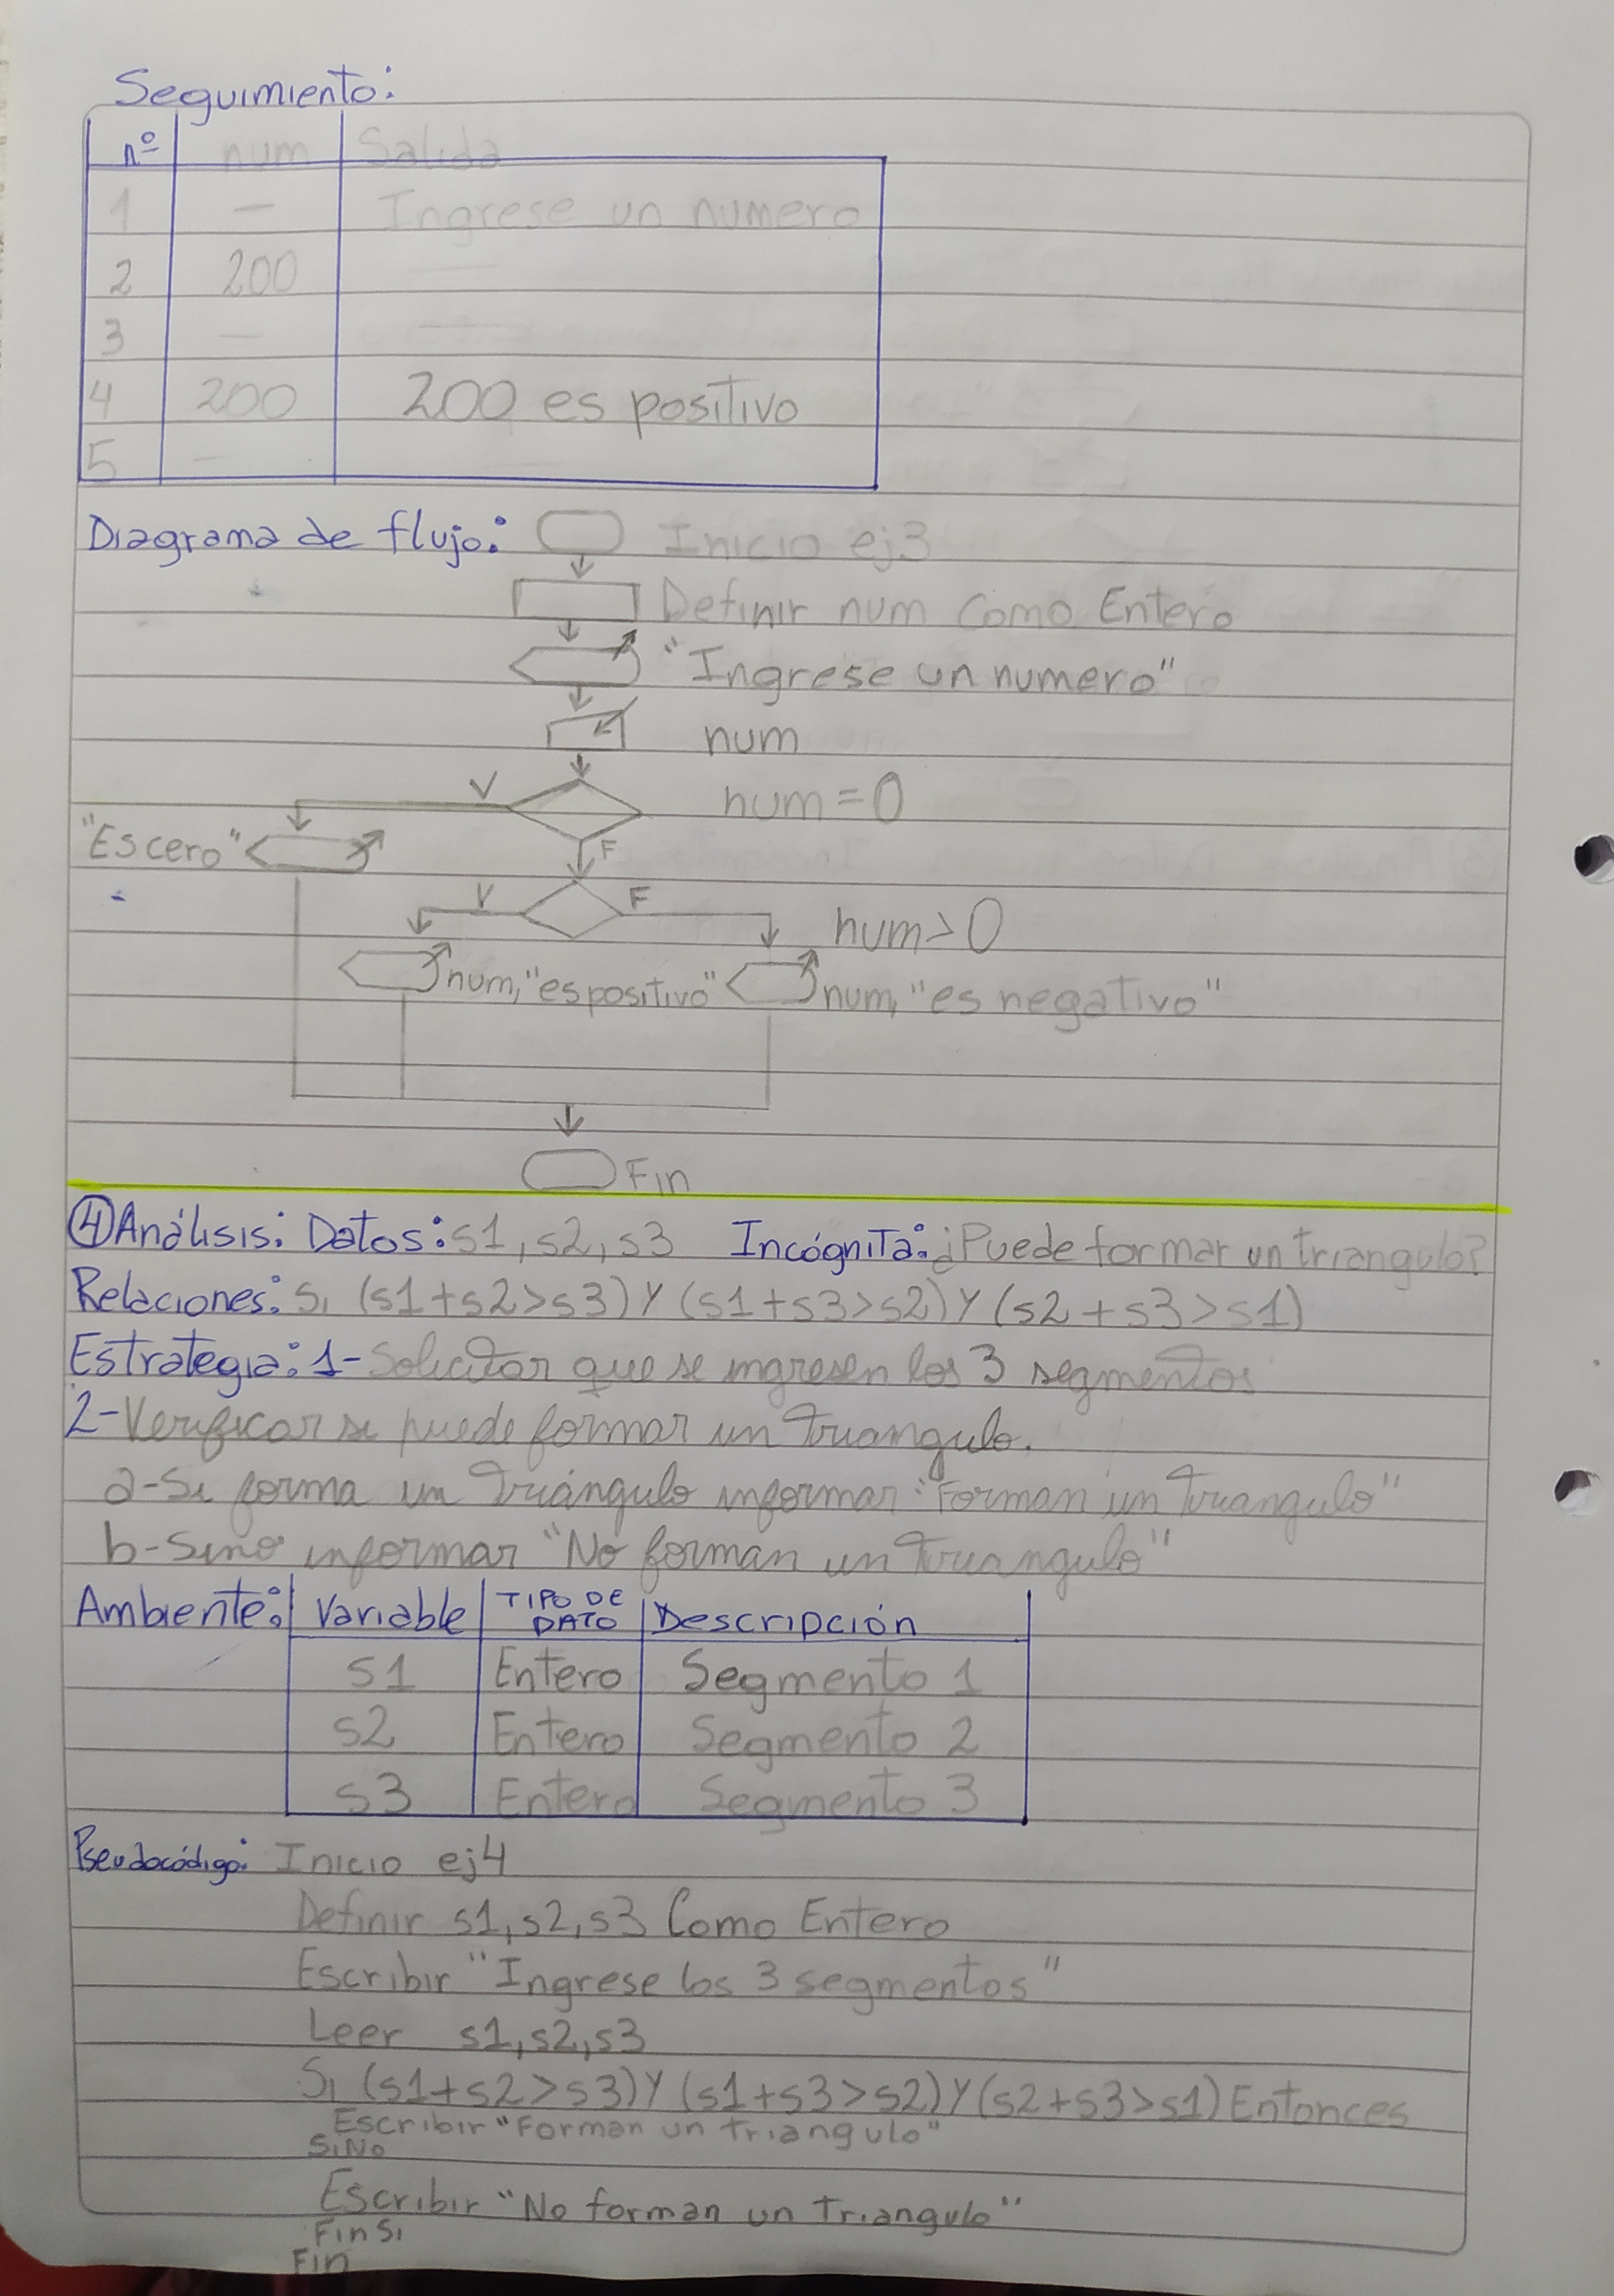 Seguimiento:
nº num Salida
1 — Ingrese un numero
2 200 —
3 — —
4 200 200 es positivo
5 —
Diagrama de flujo: Inicio ej3
Definir num Como Entero
"Ingrese un numero"
num
V num=0
"Es cero" F
V F num>0
num, "es positivo" num, "es negativo"
Fin
④ Análisis: Datos: s1, s2, s3 Incógnita: ¿Puede formar un triangulo?
Relaciones: Si (s1+s2>s3) Y (s1+s3>s2) Y (s2+s3>s1)
Estrategia: 1- Solicitar que se ingresen los 3 segmentos
2- Verificar si puede formar un triangulo.
a- Si forma un triángulo informar "Forman un triangulo"
b- Sino informar "No forman un triangulo"
Ambiente: Variable TIPO DE DATO Descripción
s1 Entero Segmento 1
s2 Entero Segmento 2
s3 Entero Segmento 3
Pseudocódigo: Inicio ej4
Definir s1, s2, s3 Como Entero
Escribir "Ingrese los 3 segmentos"
Leer s1, s2, s3
Si (s1+s2>s3) Y (s1+s3>s2) Y (s2+s3>s1) Entonces
Escribir "Forman un triangulo"
SiNo
Escribir "No forman un Triangulo"
FinSi
Fin